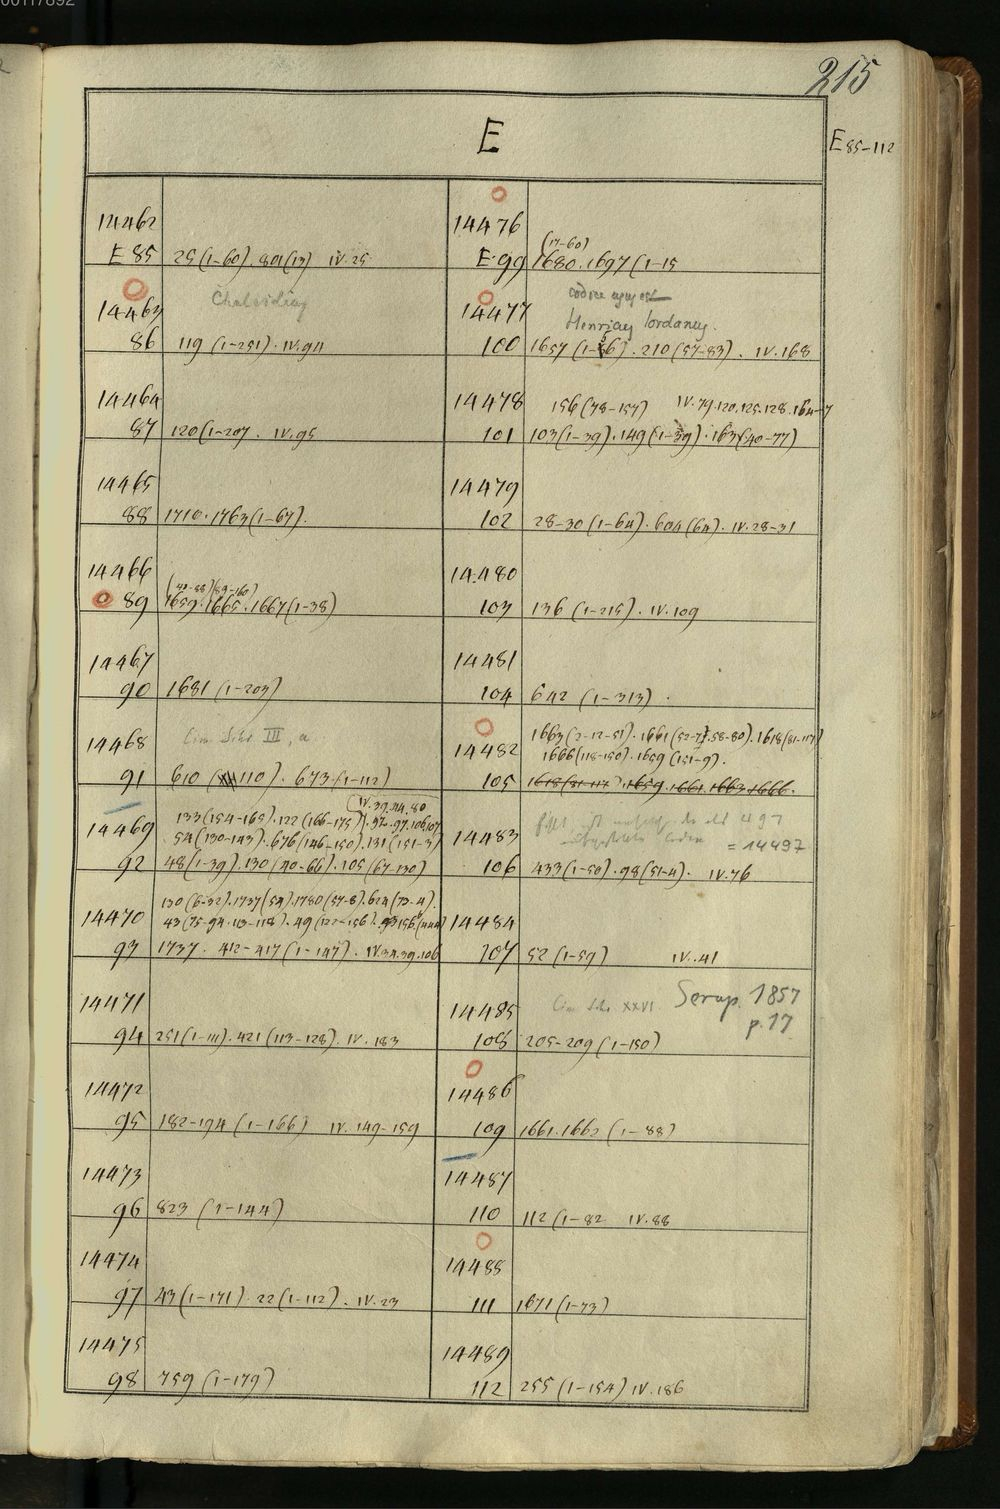 00117892
215
E
E 85-112
14462
E 85 25 (1-60). 801 (13) IV. 25
14463 Chalcidius
86 119 (1-251). IV. 94
14464
87 120 (1-207. IV. 95
14465
88 1710. 1763 (1-67).
14466 (40-88) (89-160)
89 1659. 1665. 1667 (1-38)
14467
90 1681 (1-203)
14468 Cim. Schr. III, a
91 610 (110). 673 (1-112)
IV. 39. 114. 80
14469 133 (154-165). 122 (166-175). 92. 97. 106. 107
54 (130-143). 676 (146-150). 131 (151-3)
92 48 (1-39). 130 (40-66). 105 (67-130)
130 (6-32). 1737 (54). 1780 (57-8). 624 (73-4).
14470 43 (75-94. 113-118). 49 (122-156).
93 1737. 412-417 (1-147). IV. 34. 39. 106
14471
94 251 (1-111). 421 (113-128). IV. 183
14472
95 182-194 (1-166) IV. 149-159
14473
96 823 (1-144)
14474
97 43 (1-171). 22 (1-112). IV. 23
14475
98 759 (1-179)
14476 (17-60)
E. 99 1680. 1697 (1-15
14477
Henricus Iordanus.
100 1657 (1-56). 210 (57-83). IV. 168
14478 156 (78-157) IV. 79. 120. 125. 128. 164-7
101 103 (1-39). 149 (1-39). 163 (40-77)
14479
102 28-30 (1-64). 604 (64). IV. 28-31
14480
103 136 (1-215). IV. 109
14481
104 642 (1-313).
1663 (2-12-51). 1661 (52-7. 58-80). 1618 (81-117)
14482 1666 (118-150). 1659 (151-9).
105 1618 (81-117). 1659. 1661. 1663. 1666.
14483 fehlt, ist 497
= 14497
106 433 (1-50). 98 (51-4). IV. 76
14484
107 52 (1-59) IV. 41
14485 Cim. Schr. XXVI Serap. 1857
p. 17
108 205-209 (1-150)
14486
109 1661. 1662 (1-88)
14487
110 112 (1-82 IV. 88
14488
111 1671 (1-73)
14489
112 255 (1-154) IV. 186